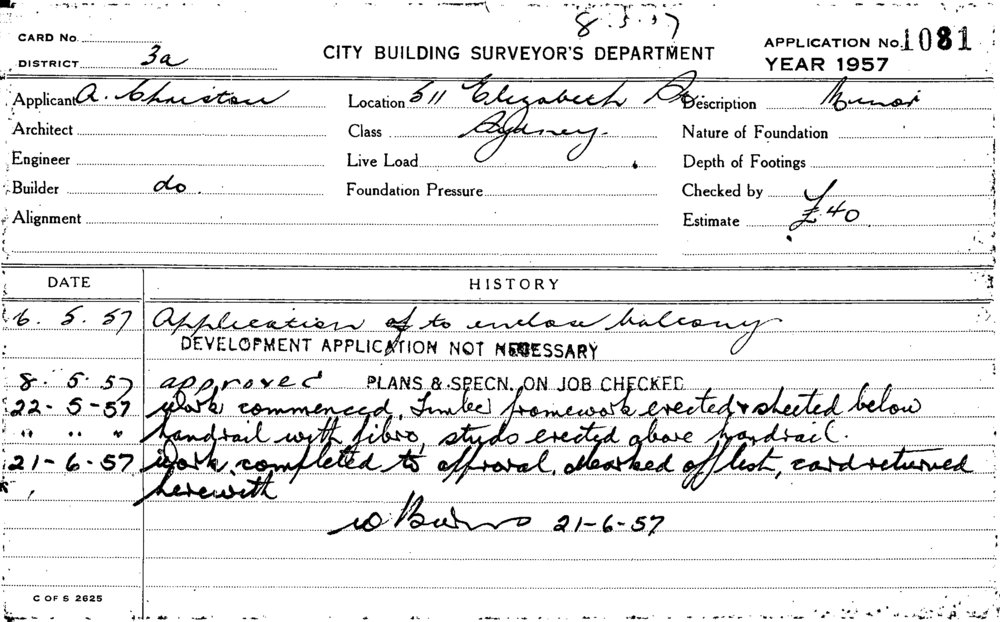 8.5.57
CARD No.
CITY BUILDING SURVEYOR'S DEPARTMENT
APPLICATION No. 1081
DISTRICT 3a
YEAR 1957
Applicant A. Christou Location 511 Elizabeth St Description Minor
Architect Class Sydney. Nature of Foundation
Engineer Live Load Depth of Footings
Builder do. Foundation Pressure Checked by
Alignment Estimate £40
DATE HISTORY
6. 5. 57 Application of to enclose balcony
DEVELOPMENT APPLICATION NOT NECESSARY
8. 5. 57 approved PLANS & SPECN. ON JOB CHECKED
22-5-57 Work commenced, Timber framework erected & sheeted below
" " " handrail with fibro, studs erected above handrail.
21-6-57 Work completed to approval. Marked off list, card returned
herewith
W Burns 21-6-57
C OF S 2625